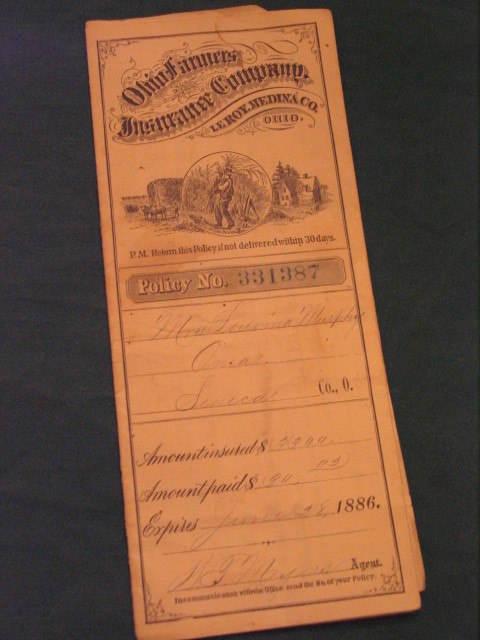 Ohio Farmers
Insurance Company.
LEROY, MEDINA CO.
OHIO.
P.M. Return this Policy if not delivered within 30 days.
Policy No. 331387
Mrs. Louvina Murphy
Omar
Seneca Co., O.
Amount insured, $
Amount paid $
Expires June 28, 1886.
Agent.
In communicating with the Office, send the No. of your Policy.